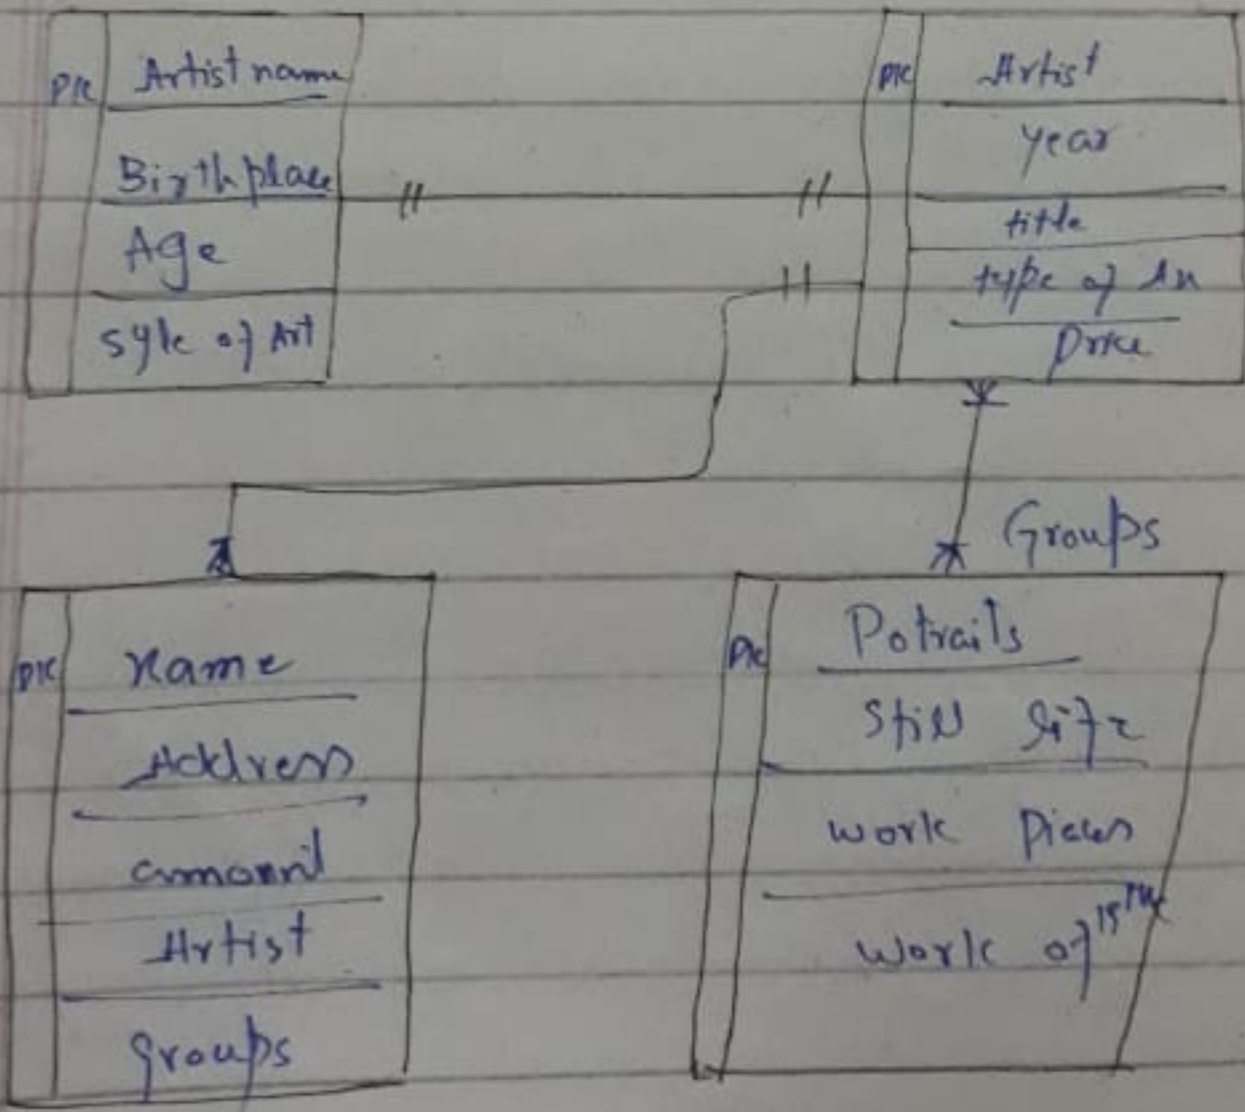 PK Artist name
Birthplace
Age
Syle of Art
PK Artist
year
title
type of
Price
Groups
PK Name
Address
ammount
Artist
groups
PK Potraits
Still life
work Pieces
work of 19th